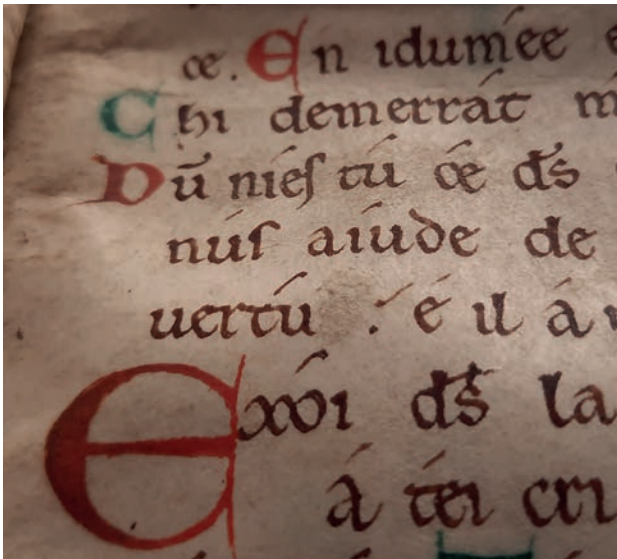 ce. En idumée e
Chi demerrát m
Dū nieſ tú ce dſ̄
núſ aíude de
uertú . é il á
Exoi dſ̄ la
á téi cri